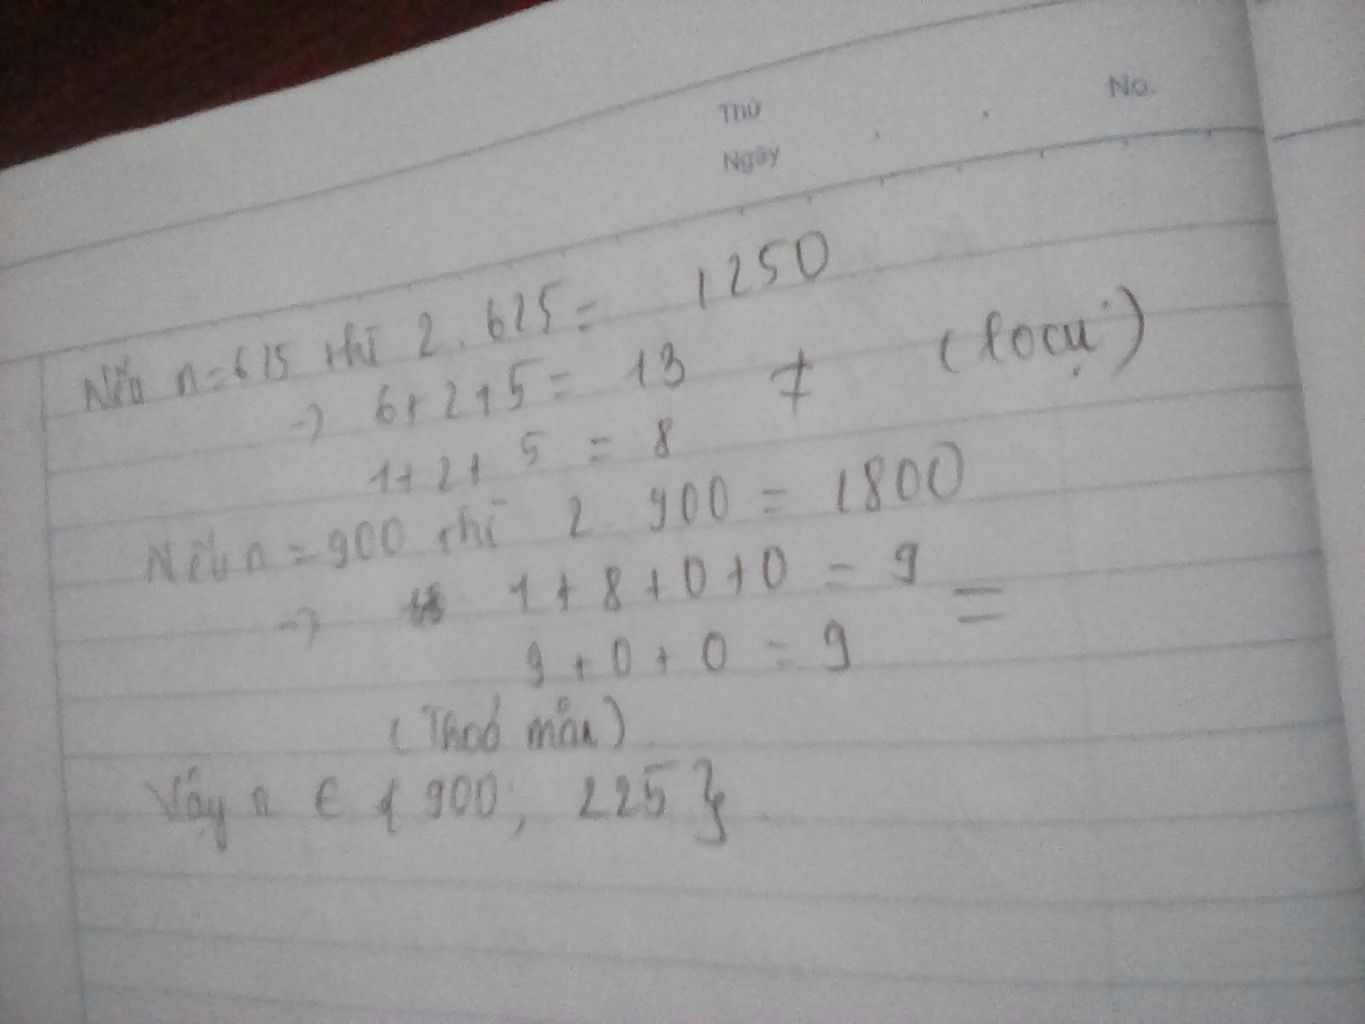 Thứ
No.
Ngày
Nếu n=615 thì 2.625= 1250
→ 6+2+5= 13 ≠ (loại)
1+2+5 = 8
Nếu n=900 thì 2.900=1800
→ 1+8+0+0=9 =
9+0+0=9
(Thoả mãn)
Vậy n ∈ {900; 225}